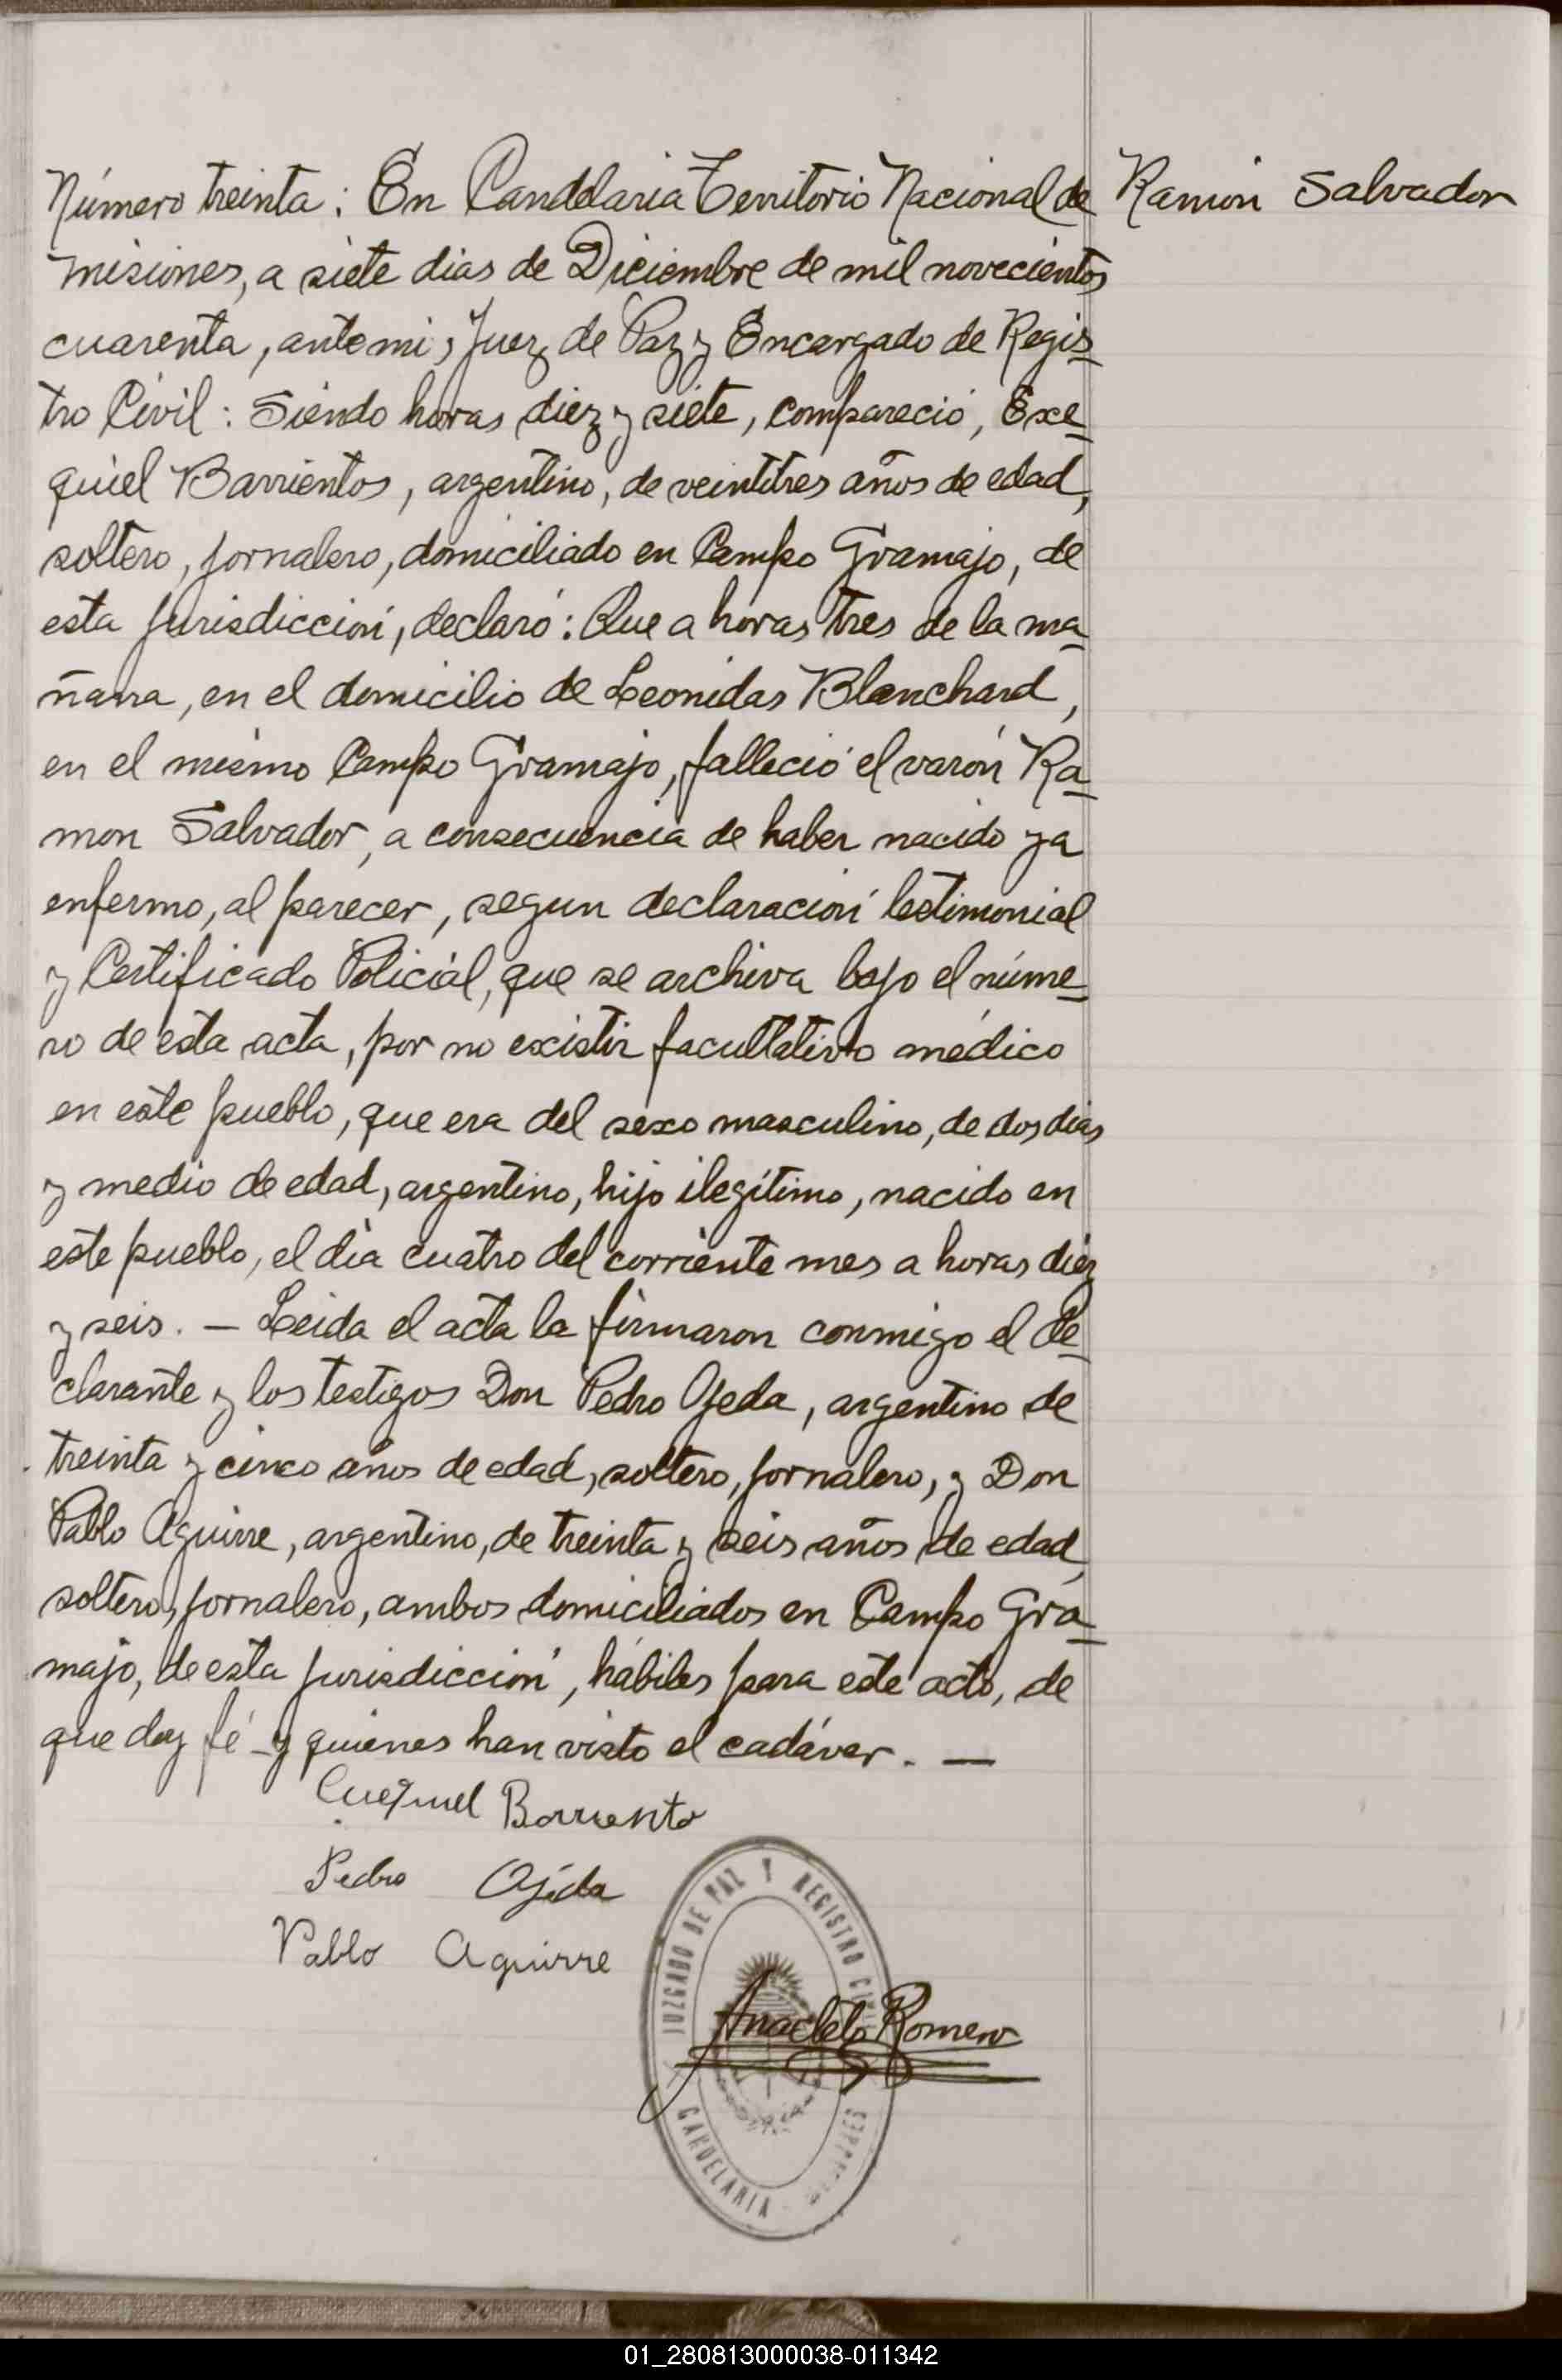 Número treinta: En Candelaria Territorio Nacional de
Ramón Salvador
Misiones, a siete dias de Diciembre de mil novecientos
cuarenta, ante mi, Juez de Paz y Encargado de Regis
tro Civil: Siendo horas diez y siete, compareció, Exe
quiel Barrientos, argentino, de veintitres años de edad,
soltero, jornalero, domiciliado en Campo Gramajo, de
esta jurisdicción, declaró: Que a horas tres de la ma
ñana, en el domicilio de Leonidas Blanchard,
en el mismo Campo Gramajo, falleció el varón Ra
mon Salvador, a consecuencia de haber nacido ya
enfermo, al parecer, segun declaración testimonial
y Certificado Policial, que se archiva bajo el núme
ro de esta acta, por no existir facultativo médico
en este pueblo, que era del sexo masculino, de dos dias
y medio de edad, argentino, hijo ilegítimo, nacido en
este pueblo, el dia cuatro del corriente mes a horas diez
y seis. — Leida el acta la firmaron conmigo el de
clarante y los testigos Don Pedro Ojeda, argentino de
treinta y cinco años de edad, soltero, jornalero, y Don
Pablo Aguirre, argentino, de treinta y seis años de edad,
soltero, jornalero, ambos domiciliados en Campo Gra
majo, de esta jurisdicción, hábiles para este acto, de
que doy fé - y quienes han visto el cadáver. —
Barriento
Pedro Ojeda
Pablo Aguirre
JUZGADO DE PAZ Y REGISTRO CIVIL
Anacleto Romero
CANDELARIA - MISIONES
01_280813000038-011342